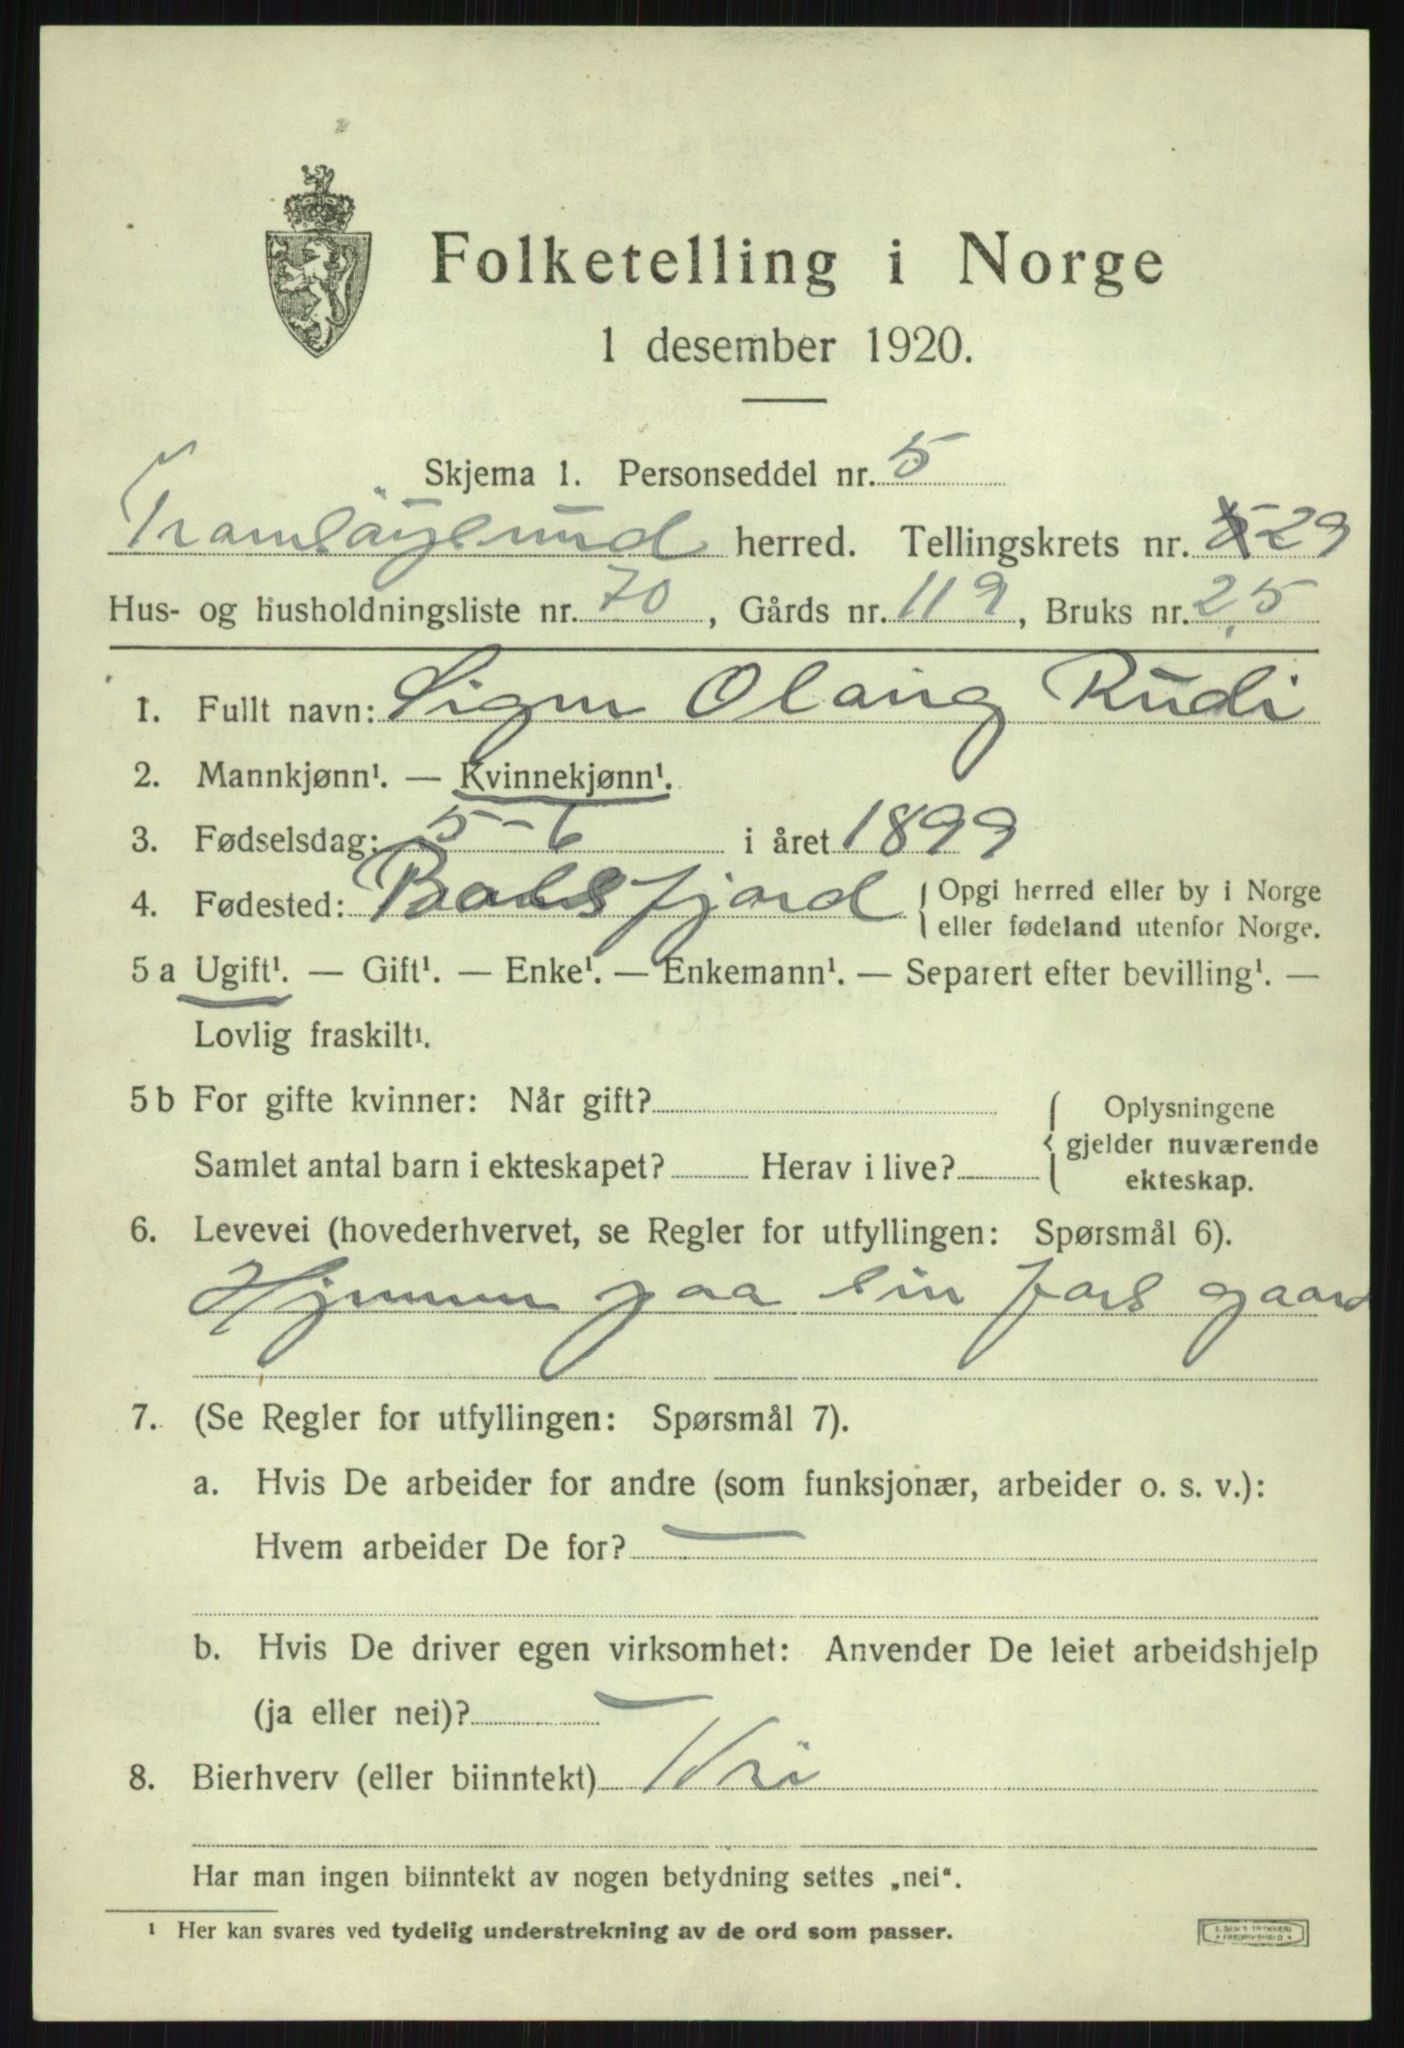 Folketelling i Norge
1 desember 1920.
Skjema 1. Personseddel nr. 5
Tromsøysund herred. Tellingskrets nr. 29
Hus- og husholdningsliste nr. 70, Gårds nr. 119, Bruks nr. 2,5
1. Fullt navn: Olaug Rudi
2. Mannkjønn¹. — Kvinnekjønn¹.
3. Fødselsdag: 5-6 i året 1899
4. Fødested: Balsfjord { Opgi herred eller by i Norge
eller fødeland utenfor Norge.
5 a Ugift¹. — Gift¹. — Enke¹. — Enkemann¹. — Separert efter bevilling¹. —
Lovlig fraskilt¹.
5 b For gifte kvinner: Når gift? { Oplysningene
gjelder nuværende
Samlet antal barn i ekteskapet? Herav i live? ekteskap.
6. Levevei (hovederhvervet, se Regler for utfyllingen: Spørsmål 6).
Hjemme paa sin fars gaard
7. (Se Regler for utfyllingen: Spørsmål 7).
a. Hvis De arbeider for andre (som funksjonær, arbeider o. s. v.):
Hvem arbeider De for? —
b. Hvis De driver egen virksomhet: Anvender De leiet arbeidshjelp
(ja eller nei)? —
8. Bierhverv (eller biinntekt) Nei
Har man ingen biinntekt av nogen betydning settes „nei“.
¹ Her kan svares ved tydelig understrekning av de ord som passer.